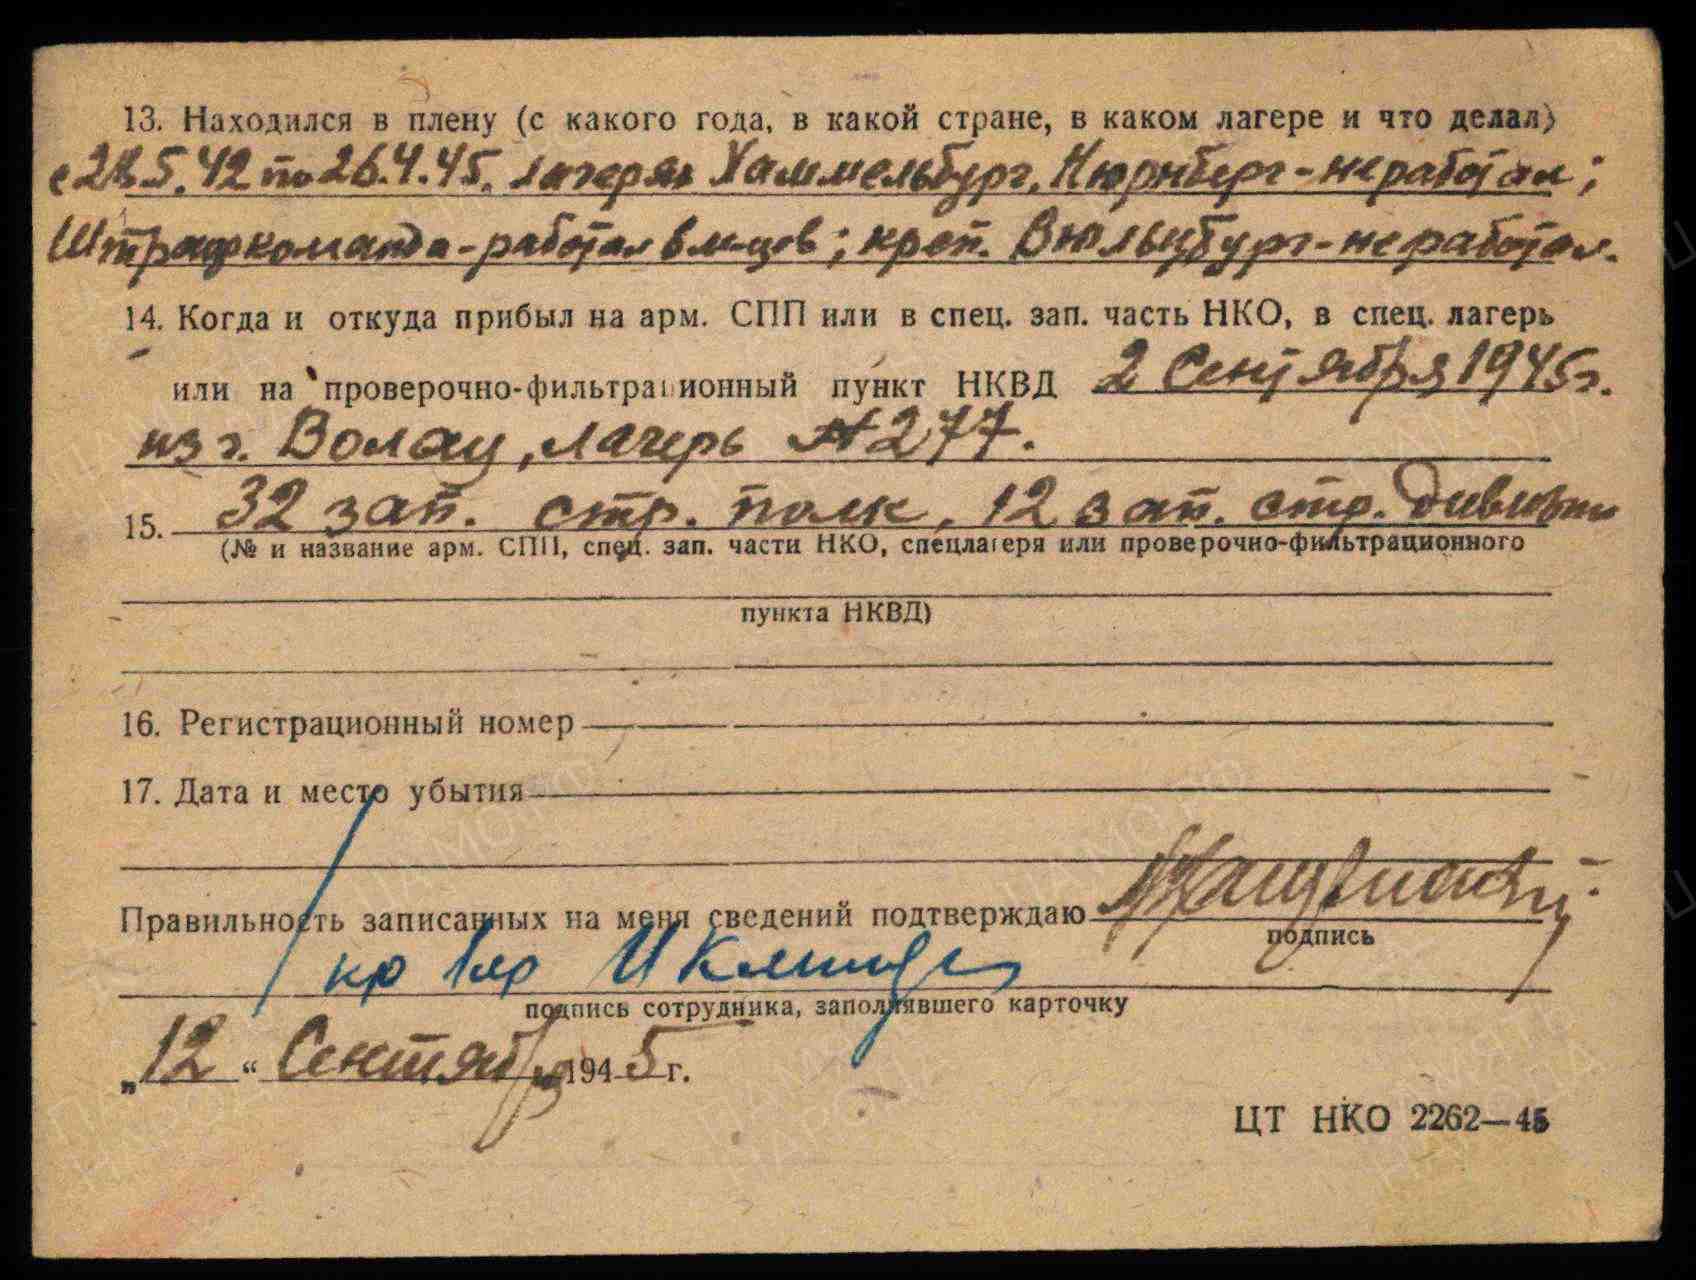 13. Находился в плену (с какого года, в какой стране, в каком лагере и что делал)
с 28.5.42 по 26.4.45. лагерях Хаммельбург, Нюрнберг - не работал;
Штрафкоманда - работал в м-цев; креп. Вюльцбург - не работал.
14. Когда и откуда прибыл на арм. СПП или в спец. зап. часть НКО, в спец. лагерь
или на проверочно-фильтрационный пункт НКВД 2 Сентября 1945 г.
из г. Волау, лагерь № 277.
15. 32 зап. стр. полк, 12 зап. стр. дивизии
(№ и название арм. СПП, спец. зап. части НКО, спецлагеря или проверочно-фильтрационного
пункта НКВД)
16. Регистрационный номер
17. Дата и место убытия
Правильность записанных на меня сведений подтверждаю
подпись
подпись сотрудника, заполнявшего карточку
„12“ Сентября 1945 г.
ЦТ НКО 2262—45